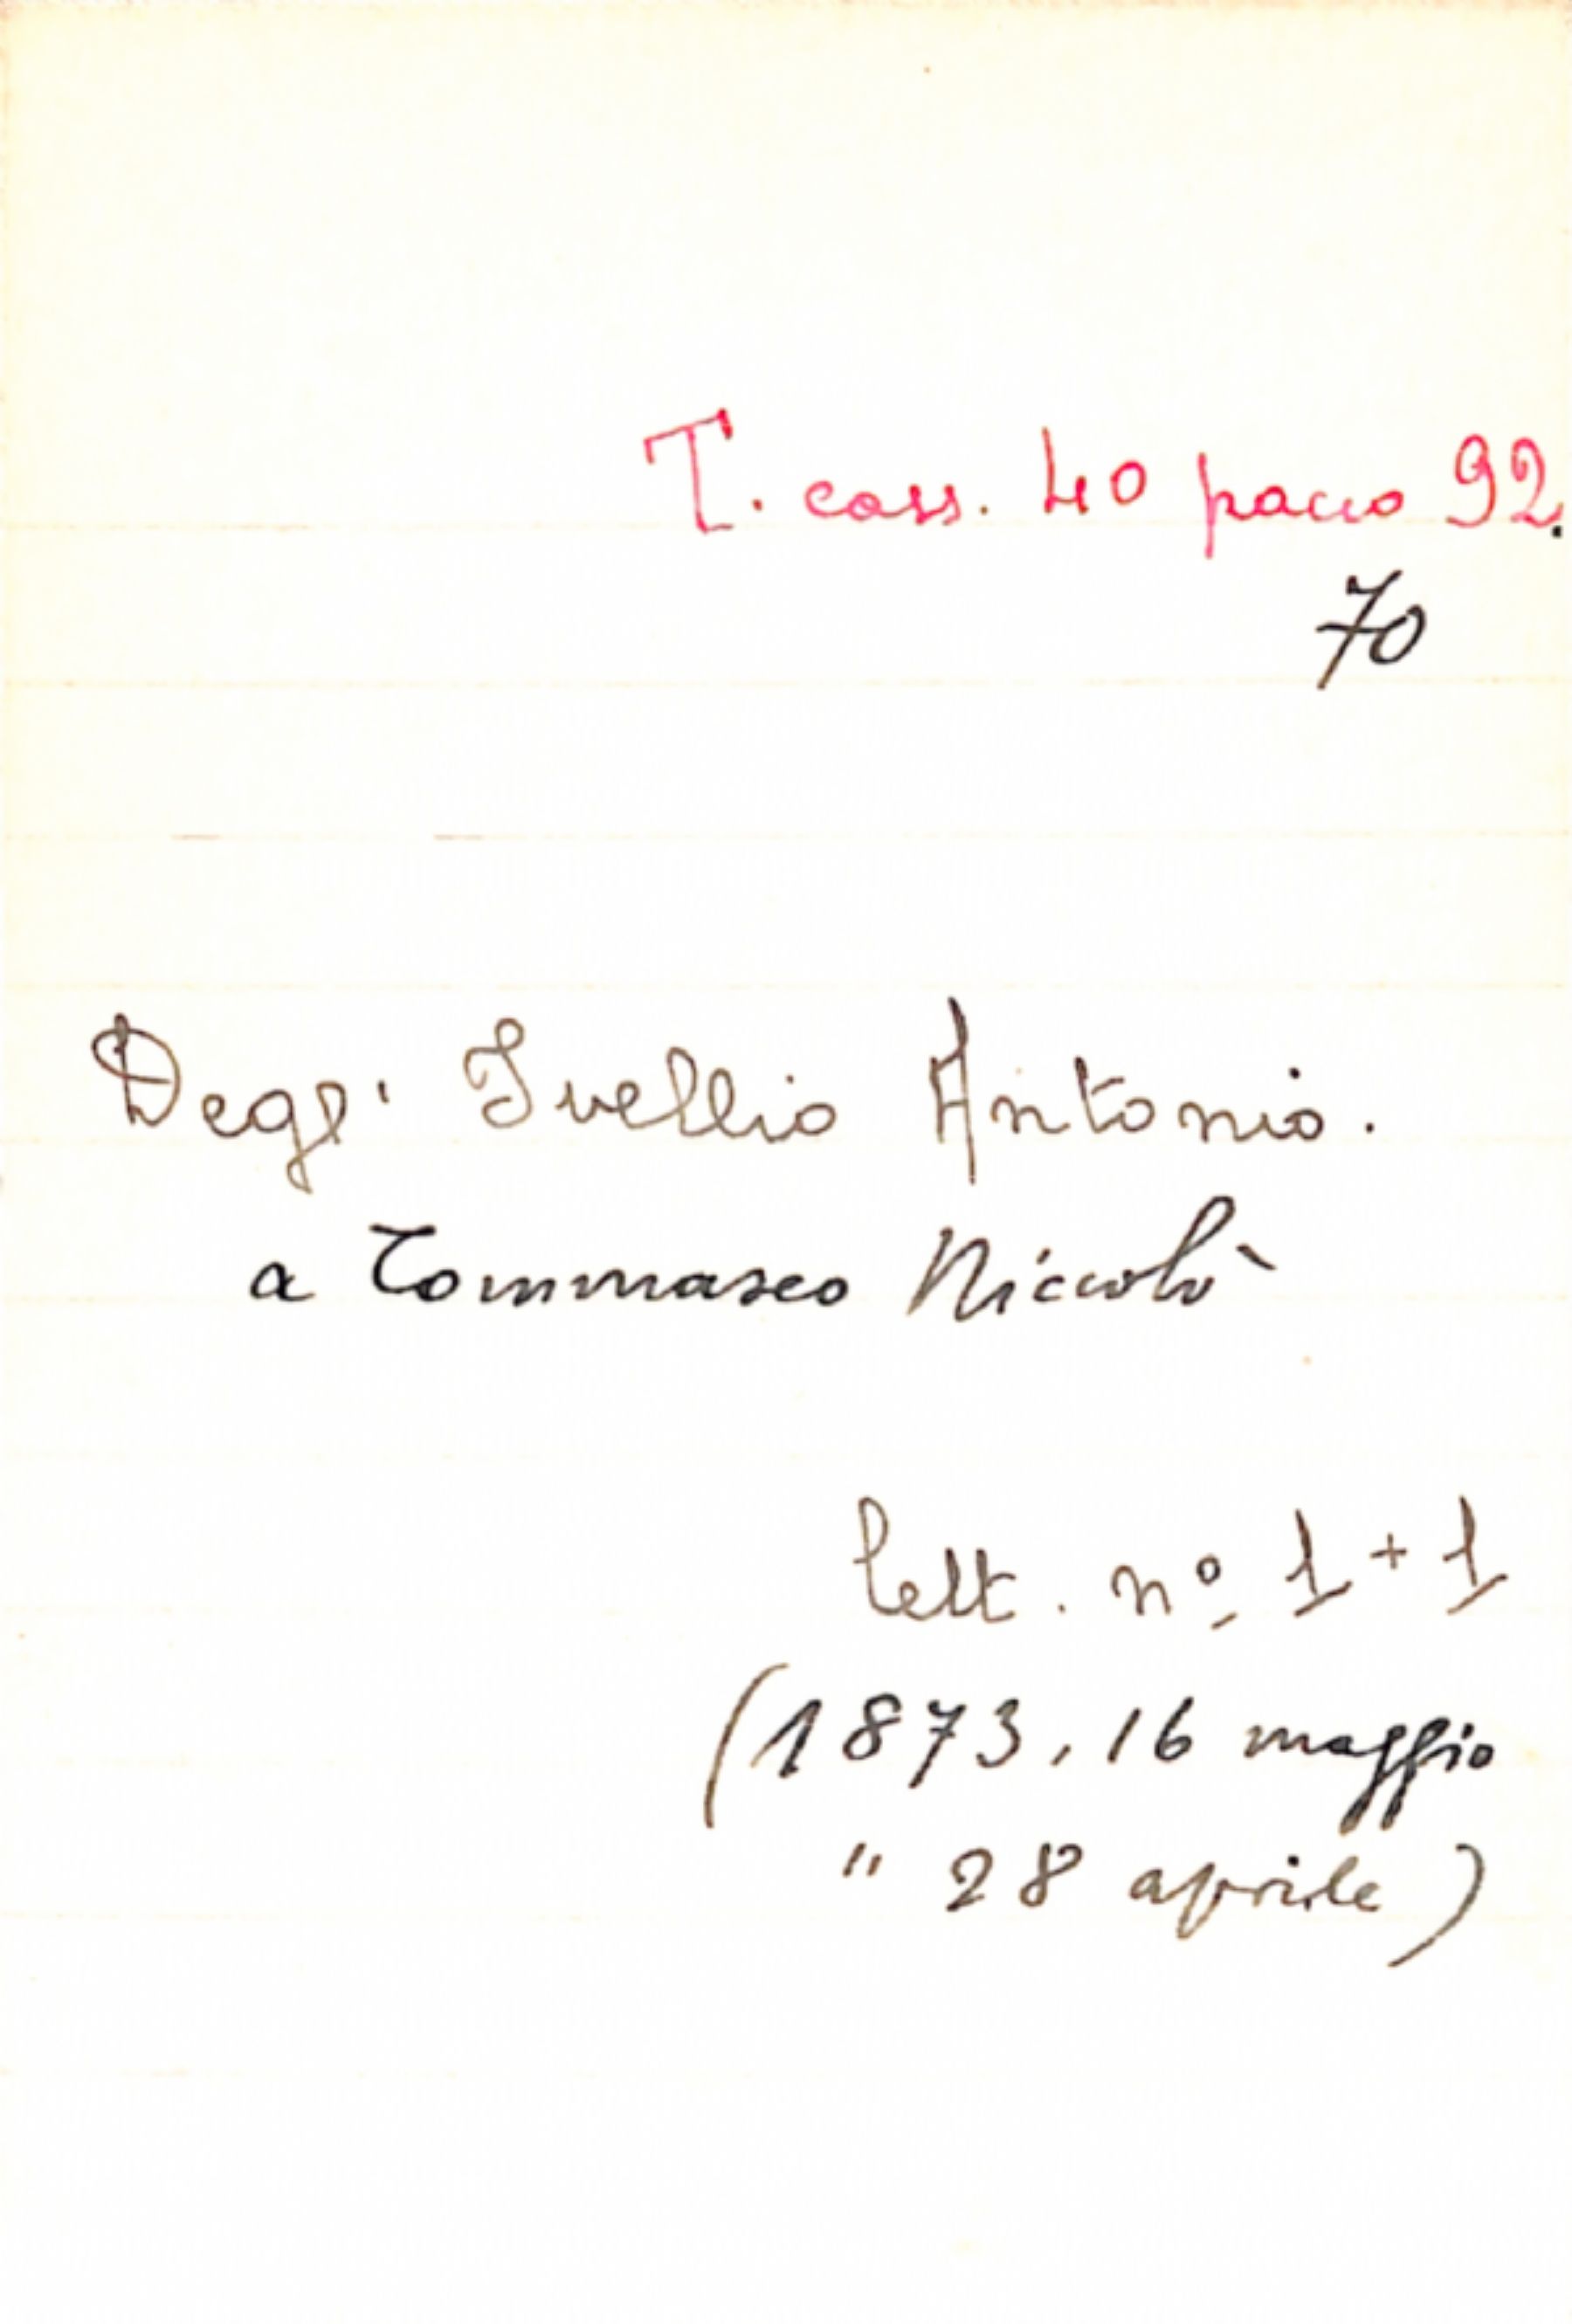 T. cass. 40 pacco 92.
70
Degl' Ivellio Antonio.
a Tommaseo Niccolò
lett. nº 1 + 1
(1873, 16 maggio
" 28 aprile)